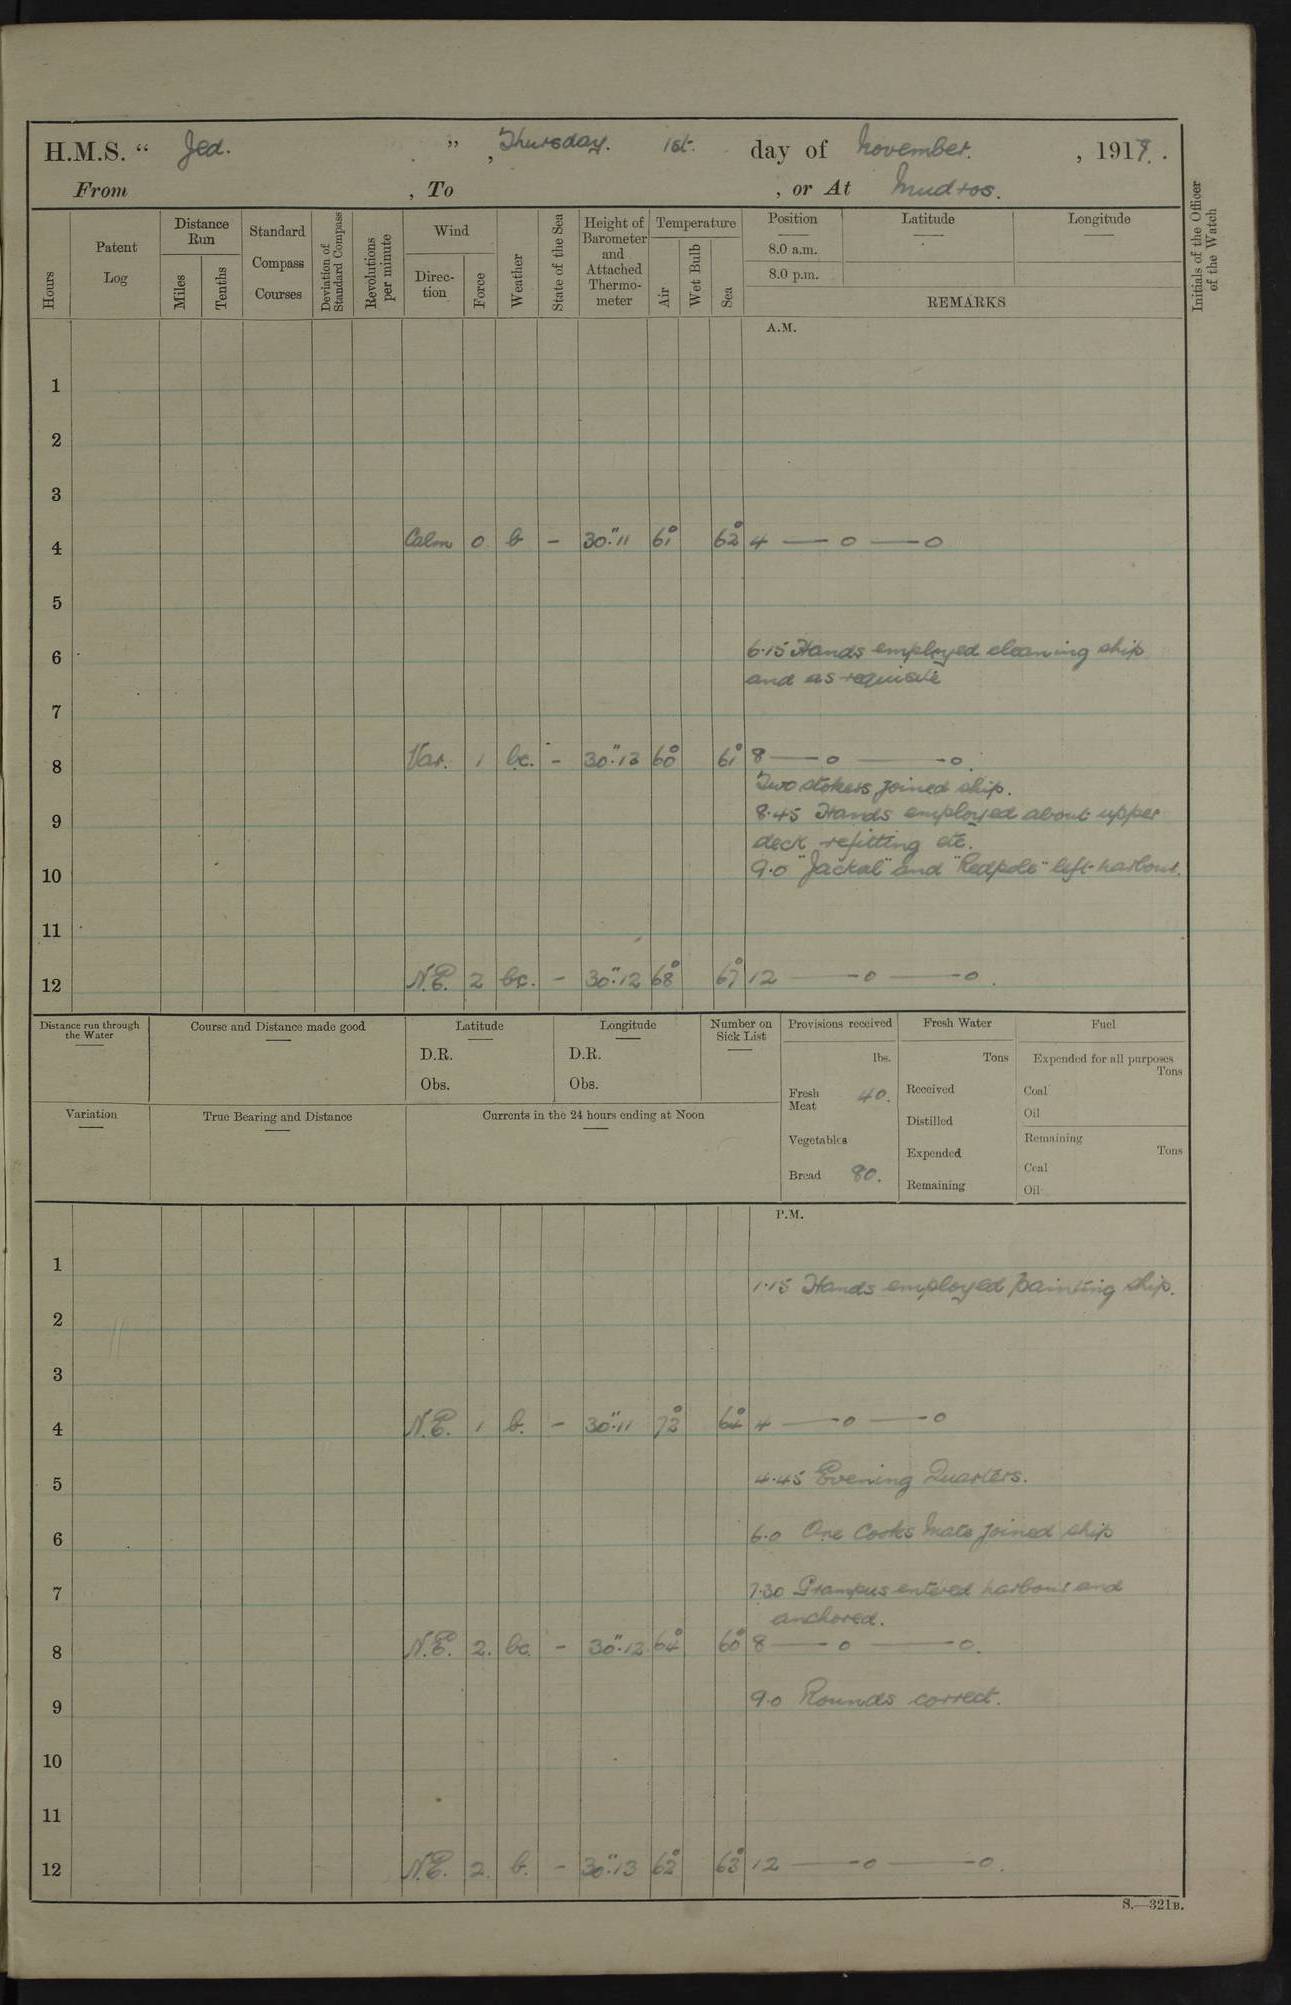 H.M.S. " Jed. " , Thursday. 1st. day of November. , 1917.
From , To , or At Mudros.
Hours
Patent Log
Distance Run
Miles
Tenths
Standard Compass Courses
Deviation of Standard Compass
Revolutions per minute
Wind
Direction
Force
Weather
State of the Sea
Height of Barometer and Attached Thermometer
Temperature
Air
Wet Bulb
Sea
Position
8.0 a.m.
8.0 p.m.
Latitude
Longitude
REMARKS
Initials of the Officer of the Watch
A.M.
1
2
3
4 Calm 0 b - 30".11 61° 62° 4 — o — o
5
6 6.15 Hands employed cleaning ship
and as requisite
7
8 Var. 1 bc. - 30".13 60° 61° 8 — o — o.
Two stokers joined ship.
9 8.45 Hands employed about upper
deck refitting etc.
10 9.0 "Jackal" and "Redpole" left harbour.
11
12 N.E. 2 bc. - 30".12 68° 67° 12 — o — o.
Distance run through the Water
Course and Distance made good
Latitude
D.R.
Obs.
Longitude
D.R.
Obs.
Number on Sick List
Provisions received
lbs.
Fresh Meat 40.
Vegetables
Bread 80.
Fresh Water
Tons
Received
Distilled
Expended
Remaining
Fuel
Expended for all purposes
Tons
Coal
Oil
Remaining
Tons
Coal
Oil
Variation
True Bearing and Distance
Currents in the 24 hours ending at Noon
P.M.
1 1.15 Hands employed painting ship.
2
3
4 N.E. 1 b. - 30".11 72° 64° 4 — o — o
5 4.45 Evening Quarters.
6 6.0 One Cooks Mate joined ship
7 7.30 Grampus entered harbour and
anchored.
8 N.E. 2. bc. - 30".12 64° 60° 8 — o — o.
9 9.0 Rounds correct.
10
11
12 N.E. 2. b. - 30".13 62° 63° 12 — o — o.
S.—321B.